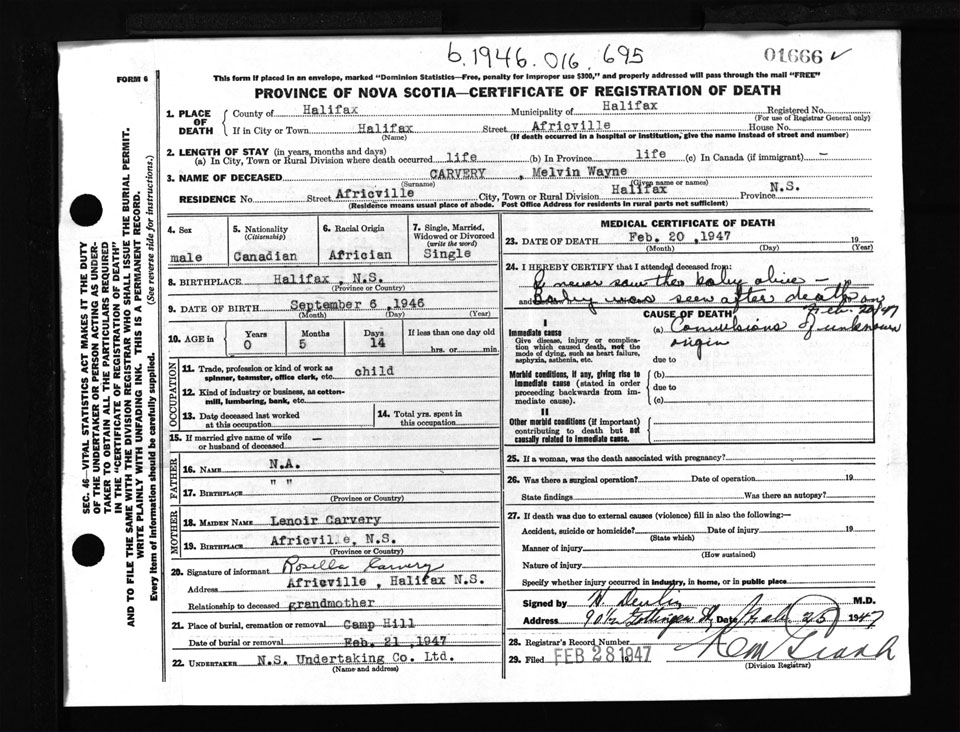 b.1946.016.695
01666 ✓
FORM 6
This form if placed in an envelope, marked "Dominion Statistics—Free, penalty for improper use $300," and properly addressed will pass through the mail "FREE"
PROVINCE OF NOVA SCOTIA—CERTIFICATE OF REGISTRATION OF DEATH
SEC. 46—VITAL STATISTICS ACT MAKES IT THE DUTY
OF THE UNDERTAKER OR PERSON ACTING AS UNDER-
TAKER TO OBTAIN ALL THE PARTICULARS REQUIRED
IN THE "CERTIFICATE OF REGISTRATION OF DEATH"
AND TO FILE THE SAME WITH THE DIVISION REGISTRAR WHO SHALL ISSUE THE BURIAL PERMIT.
WRITE PLAINLY WITH UNFADING INK. THIS IS A PERMANENT RECORD.
Every item of information should be carefully supplied. (See reverse side for instructions.)
1. PLACE OF DEATH
County of Halifax Municipality of Halifax Registered No.
(For use of Registrar General only)
If in City or Town Halifax Street Africville House No.
(Name) (If death occurred in a hospital or institution, give the name instead of street and number)
2. LENGTH OF STAY (in years, months and days)
(a) In City, Town or Rural Division where death occurred life (b) In Province life (c) In Canada (if immigrant) —
3. NAME OF DECEASED CARVERY , Melvin Wayne
(Surname) (Given name or names)
RESIDENCE No. Street Africville City, Town or Rural Division Halifax Province N.S.
(Residence means usual place of abode. Post Office Address for residents in rural parts not sufficient)
4. Sex
male
5. Nationality
(Citizenship)
Canadian
6. Racial Origin
Africian
7. Single, Married,
Widowed or Divorced
(write the word)
Single
8. BIRTHPLACE Halifax , N.S.
(Province or Country)
9. DATE OF BIRTH September 6 , 1946
(Month) (Day) (Year)
10. AGE in
Years Months Days If less than one day old
0 5 14 hrs. or min.
OCCUPATION
11. Trade, profession or kind of work as
spinner, teamster, office clerk, etc. child
12. Kind of industry or business, as cotton-
mill, lumbering, bank, etc.
13. Date deceased last worked
at this occupation
14. Total yrs. spent in
this occupation
15. If married give name of wife
or husband of deceased —
FATHER
16. NAME N.A.
17. BIRTHPLACE " "
(Province or Country)
MOTHER
18. MAIDEN NAME Lenoir Carvery
19. BIRTHPLACE Africville, N.S.
(Province or Country)
20. Signature of informant Rosella Carvery
Address Africville , Halifax N.S.
Relationship to deceased grandmother
21. Place of burial, cremation or removal Camp Hill
Date of burial or removal Feb. 21 , 1947
22. UNDERTAKER N.S. Undertaking Co. Ltd.
(Name and address)
MEDICAL CERTIFICATE OF DEATH
23. DATE OF DEATH Feb. 20 , 1947 19
(Month) (Day) (Year)
24. I HEREBY CERTIFY that I attended deceased from:
I never saw the baby alive —
Baby was seen after death on
Feb. 20/47
CAUSE OF DEATH
I
Immediate cause
Give disease, injury or complica-
tion which caused death, not the
mode of dying, such as heart failure,
asphyxia, asthenia, etc.
(a) Convulsions of unknown
origin
due to
Morbid conditions, if any, giving rise to
immediate cause (stated in order
proceeding backwards from im-
mediate cause).
(b)
due to
(c)
II
Other morbid conditions (if important)
contributing to death but not
causally related to immediate cause.
25. If a woman, was the death associated with pregnancy?
26. Was there a surgical operation? Date of operation 19
State findings Was there an autopsy?
27. If death was due to external causes (violence) fill in also the following:—
Accident, suicide or homicide? Date of injury 19
(State which)
Manner of injury
(How sustained)
Nature of injury
Specify whether injury occurred in industry, in home, or in public place
Signed by M.D.
Address 90½ Gottingen St Date Feb 25 1947
28. Registrar's Record Number
29. Filed FEB 28 1947 19
(Division Registrar)